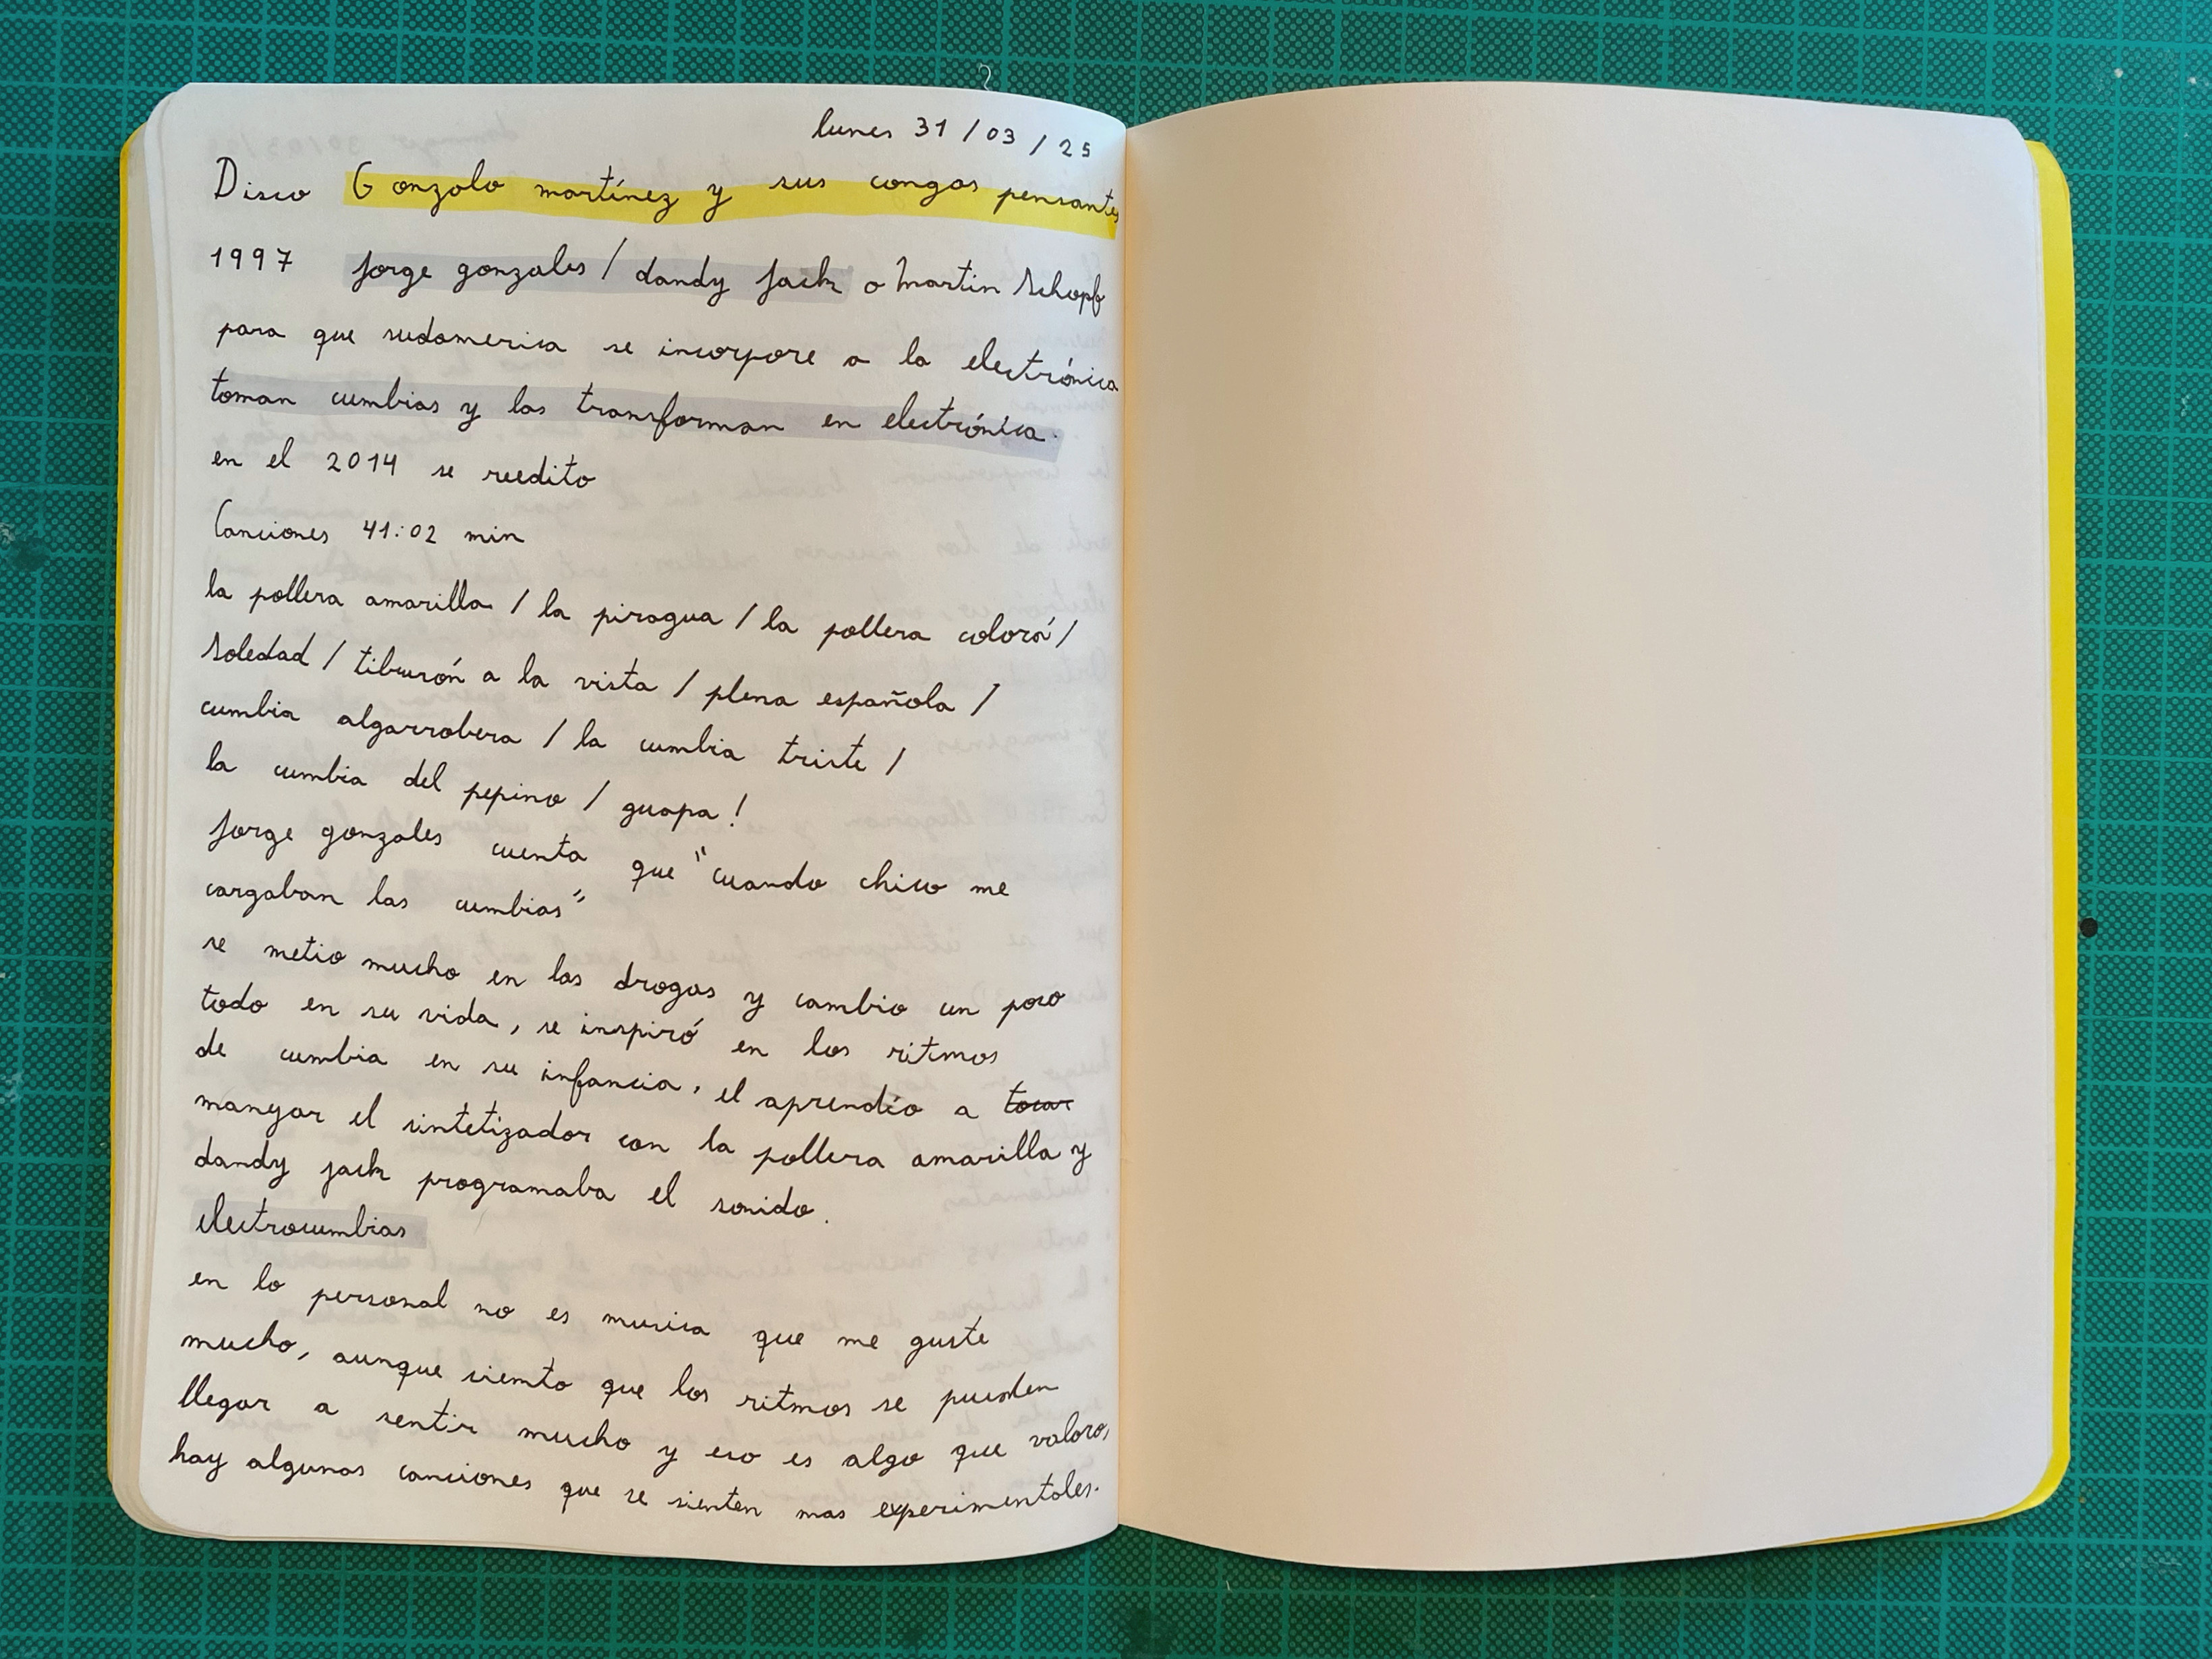 lunes 31/03/25
Disco Gonzalo martínez y sus congas pensantes
1997 Jorge gonzales / dandy Jack o Martin Schopf
para que sudamerica se incorpore a la electrónica
toman cumbias y las transforman en electrónica.
en el 2014 se reedito
Canciones 41:02 min
la pollera amarilla / la piragua / la pollera colorá /
Soledad / tiburón a la vista / plena española /
cumbia algarrobera / la cumbia triste /
la cumbia del pepino / guapa!
Jorge gonzales cuenta que "cuando chico me
cargaban las cumbias"
se metio mucho en las drogas y cambio un poco
todo en su vida, se inspiró en los ritmos
de cumbia en su infancia, el aprendio a tocar
manyar el sintetizador con la pollera amarilla y
dandy jack programaba el sonido.
electrocumbias
en lo personal no es musica que me guste
mucho, aunque siento que los ritmos se pueden
llegar a sentir mucho y eso es algo que valoro,
hay algunas canciones que se sienten mas experimentales.